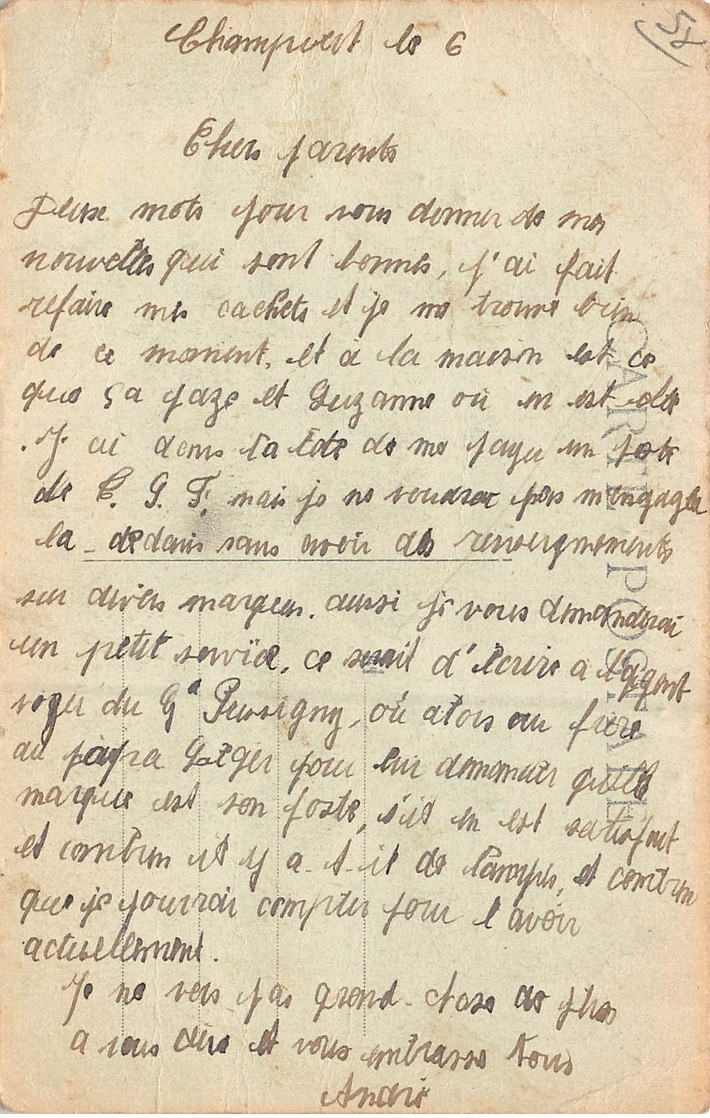 57
Champvert le 6
Chers parents
Deux mots pour vous donner de mes
nouvelles qui sont bonnes, j'ai fait
refaire mes cachets et je me trouve bien
de ce moment, et à la maison est ce
que ça gaze et Suzanne ou en est elle
. J ai dans la tête de me payer un poste
de T. S. F. mais je ne voudrai pas m'engager
la - dedans sans avoir des renseignements
sur divers marques. aussi je vous demanderai
un petit service, ce serait d'écrire a l'agent
voyer du Gd Pressigny, où alors au frère
au papa pour lui demander quelle
marque est son poste, s'il en est satisfait
et combien il y a-t-il de lampes, et combien
que je pourrai compter pour l'avoir
actuellement.
Je ne vois pas grand-chose de plus
a vous dire et vous embrasse tous
André
CARTE POSTALE